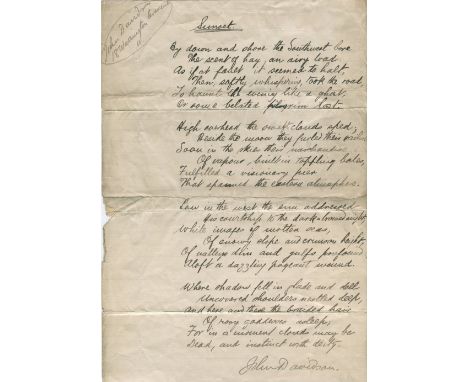 John Davidson
Sunset.
By down and shore the South-west bore
The scent of hay, an airy load
As if at fault it seemed to halt,
Then, softly whispering, took the road,
To haunt the evening like a ghost,
Or some belated pilgrim lost.
High overhead the swift clouds sped;
Beside the moon they furled their sails
Soon in the skies their merchandise
Of vapour, built in toppling bales,
Fulfilled a visionary pier
That spanned the eastern atmosphere.
Low in the west the sun addressed
His courtship to the dark-browed night;
White images of molten seas,
Of snowy slope and crimson height,
Of valleys dim and gulfs profound
Aloft a dazzling pageant wound.
Where shadows fell in glade and dell
Uncovered shoulders nestled deep,
And here and there the braided hair
Of rosy goddesses asleep;
For in a moment clouds may be
Dead, and instinct with deity.
John Davidson.